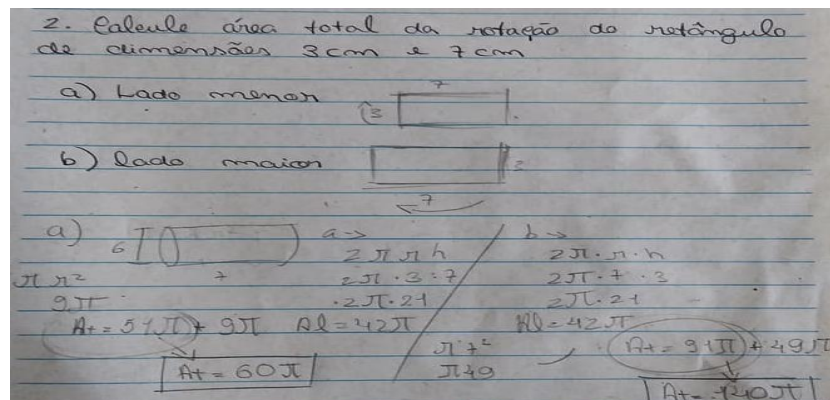 2. Calcule área total da rotação do retângulo
de dimensões 3cm e 7cm
a) Lado menor
7
3
b) lado maior
3
7
a)
6
7
π r²
9π
At = 51π + 9π
At = 60π
a →
2π r h
2π · 3 · 7
· 2π · 21
Al = 42π
b →
2π · r · h
2π · 7 · 3
2π · 21
Al = 42π
π 7²
π49
At = 91π + 49π
At = 140π